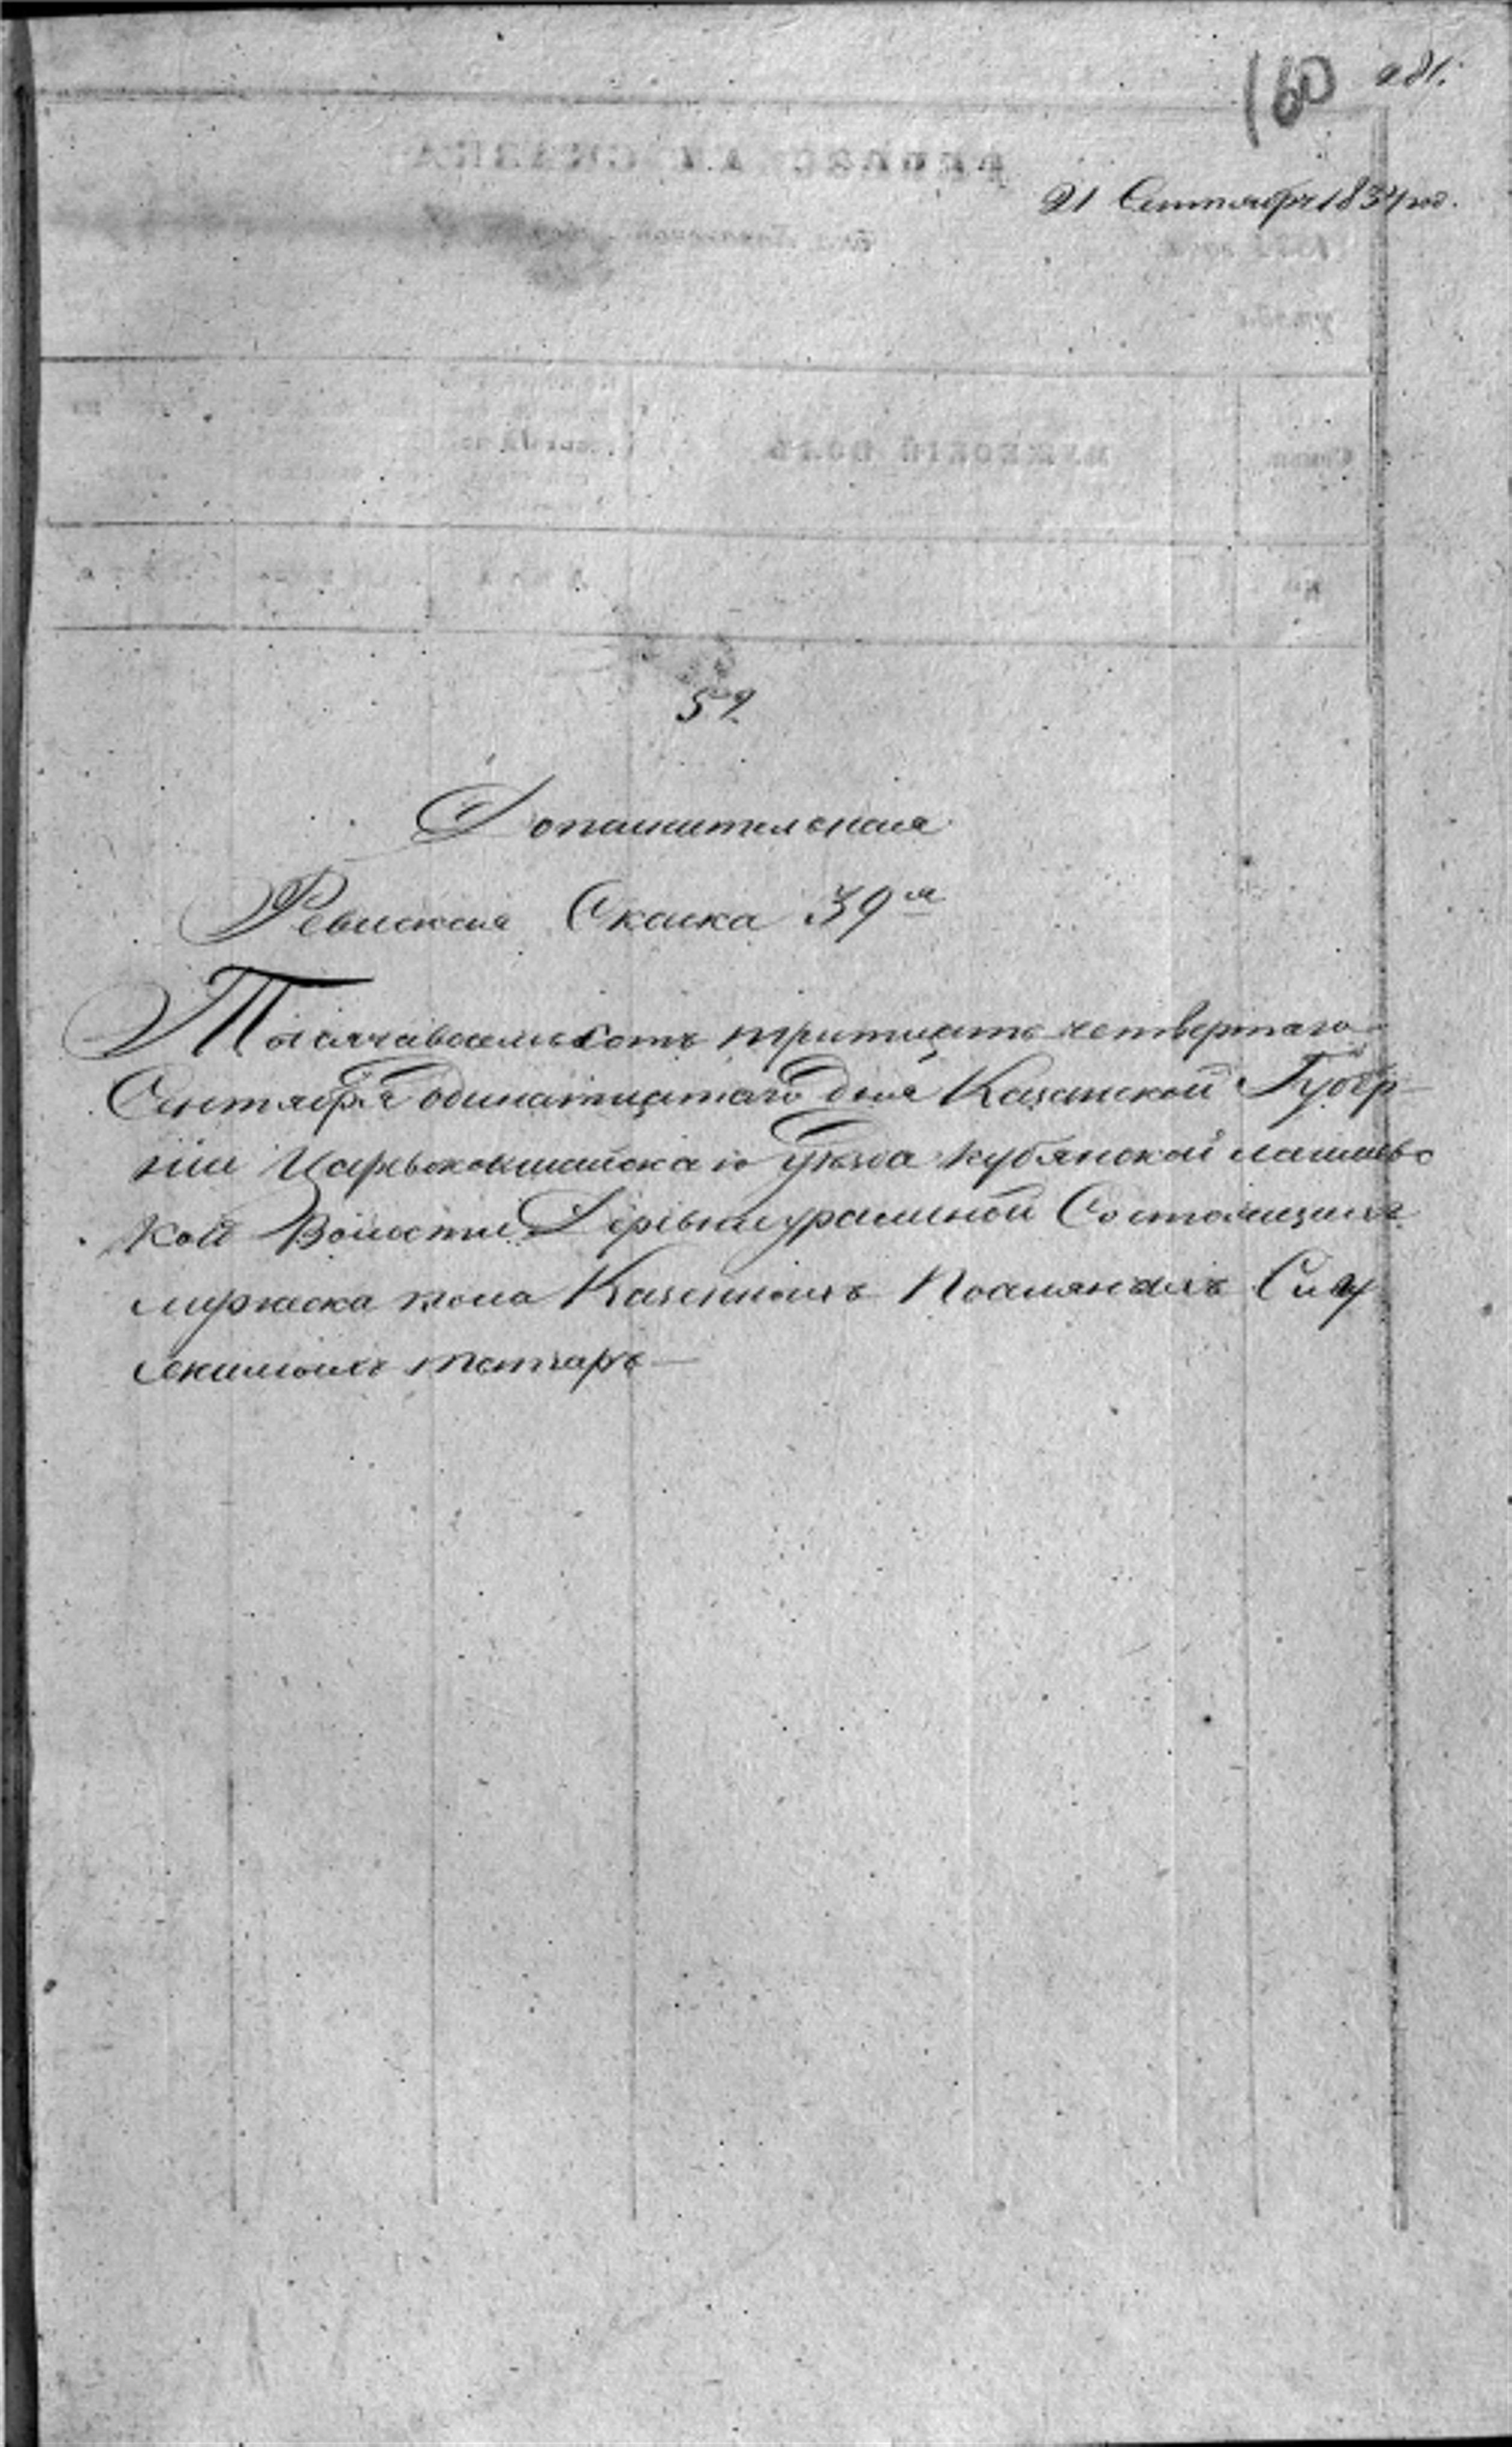 160 281.
21 Сентября 1834 год.
59.
Дополнительная
Ревиская Скаска 39я
Тысячавосемьсотъ тритцать четвертаго
Сентября одинатцатаго дня Казанской Губер-
ніи Царевококшайскаго уезда Кубянской
кой Волости Деревни ураслиной Состоящихъ
мужеска пола Казенныхъ Посялянахъ
татаръ